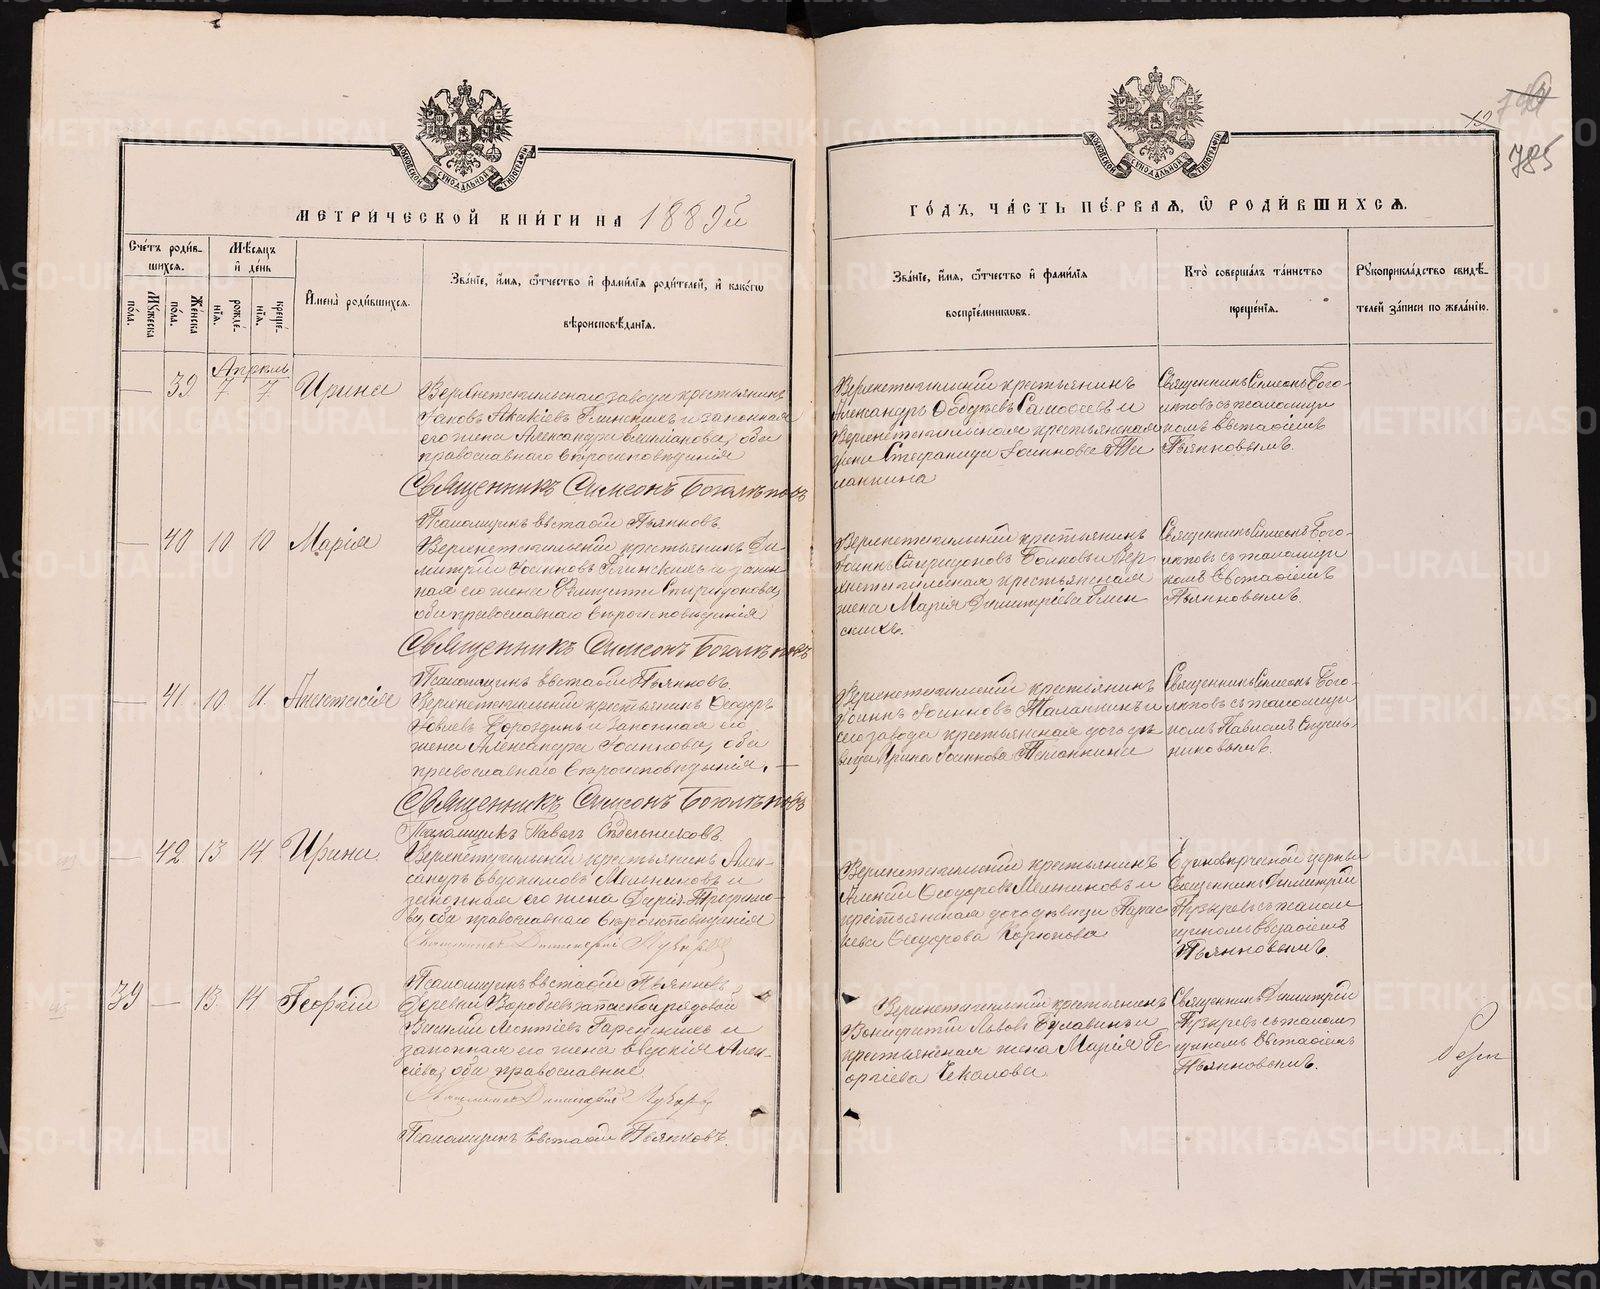 785
МЕТРИЧЕСКОЙ КНИГИ НА 1889й
ГОДЪ, ЧАСТЬ ПЕРВАЯ, Ѡ РОДИВШИХСЯ.
Счетъ родив-
шихся.
Мужеска пола.
Женска пола.
Мѣсяцъ
и день
рожде-
нія.
креще-
нія.
Имена родившихся.
Званіе, имя, ѿчество и фамилія родителей, и какогѡ
вѣроисповѣданія.
Званіе, имя, ѿчество и фамилія
воспріемникѡвъ.
Кто совершалъ таинство
крещенія.
Рукоприкладство свидѣ-
телей записи по желанію.
Апрель
— 39 7 7 Ирина
Верхнетагильскаго завода крестьянинъ
Яковъ Акакіевъ Глинскихъ и законная
его жена Александра Емиліанова, оба
православнаго вѣроисповѣданія
Священникъ Симеонъ Боголѣповъ
Псаломщикъ Евстафій Пьянковъ.
Верхнетагильский крестьянинъ
Александръ Самойловъ и
Верхнетагильская крестьянская
жена Стефанида Іоаннова Та
ланкина
Священникъ Симеонъ Бого-
лѣповъ съ псаломщи
комъ Евстафіемъ
Пьянковымъ.
— 40 10 10 Марія
Верхнетагильский крестьянинъ Ди-
митрій Іоанновъ Глинскихъ и закон-
ная его жена Спиридонова,
оба православнаго вѣроисповѣданія
Священникъ Симеонъ Боголѣповъ
Псаломщикъ Евстафій Пьянковъ.
Верхнетагильский крестьянинъ
Іоаннъ Спиридоновъ Волковъ и Вер-
хнетагильская крестьянская
жена Марія Димитріева Глин
скихъ.
Священникъ Симеонъ Бого-
лѣповъ съ псаломщи
комъ Евстафіемъ
Пьянковымъ.
— 41 10 11 Анастасія
Верхнетагильский крестьянинъ Ѳеодоръ
Іовлевъ Бороздинъ и законная его
жена Александра Іоаннова, оба
православнаго вѣроисповѣданія. —
Священникъ Симеонъ Боголѣповъ
Псаломщикъ Павелъ Сѣдельниковъ.
Верхнетагильский крестьянинъ
Іоаннъ Іоанновъ Таланкинъ и
сего завода крестьянская дочь дѣ
вица Ирина Іоаннова Таланкина
Священникъ Симеонъ Бого-
лѣповъ съ псаломщи
комъ Павломъ Сѣдель-
никовымъ.
— 42 13 14 Ирина
Верхнетагильский крестьянинъ Алек-
сандръ Евдокимовъ Мельниковъ и
законная его жена Дарія Трофимо-
ва, оба православнаго вѣроисповѣданія
Священникъ Димитрій Пузырев
Псаломщикъ Евстафій Пьянковъ.
Верхнетагильский крестьянинъ
Алексій Ѳеодоровъ Мельниковъ и
крестьянская дочь дѣвица Парас
кева Ѳеодорова Корюкова
Единовѣрческой церкви
Священникъ Димитрій
Пузыревъ съ псалом
щикомъ Евстафіемъ
Пьянковымъ.
39 — 13 14 Георгій
Деревни Воробьевъ запасный рядовой
Василій Леонтіевъ и
законная его жена Евдокія Алек-
сіева, оба православные
Священникъ Димитрій Пузырев
Псаломщикъ Евстафій Пьянковъ.
Верхнетагильский крестьянинъ
Вонифатій Львовъ Булавинъ и
крестьянская жена Марія Ге
оргіева Чкалова
Священникъ Димитрій
Пузыревъ съ псалом
щикомъ Евстафіемъ
Пьянковымъ.